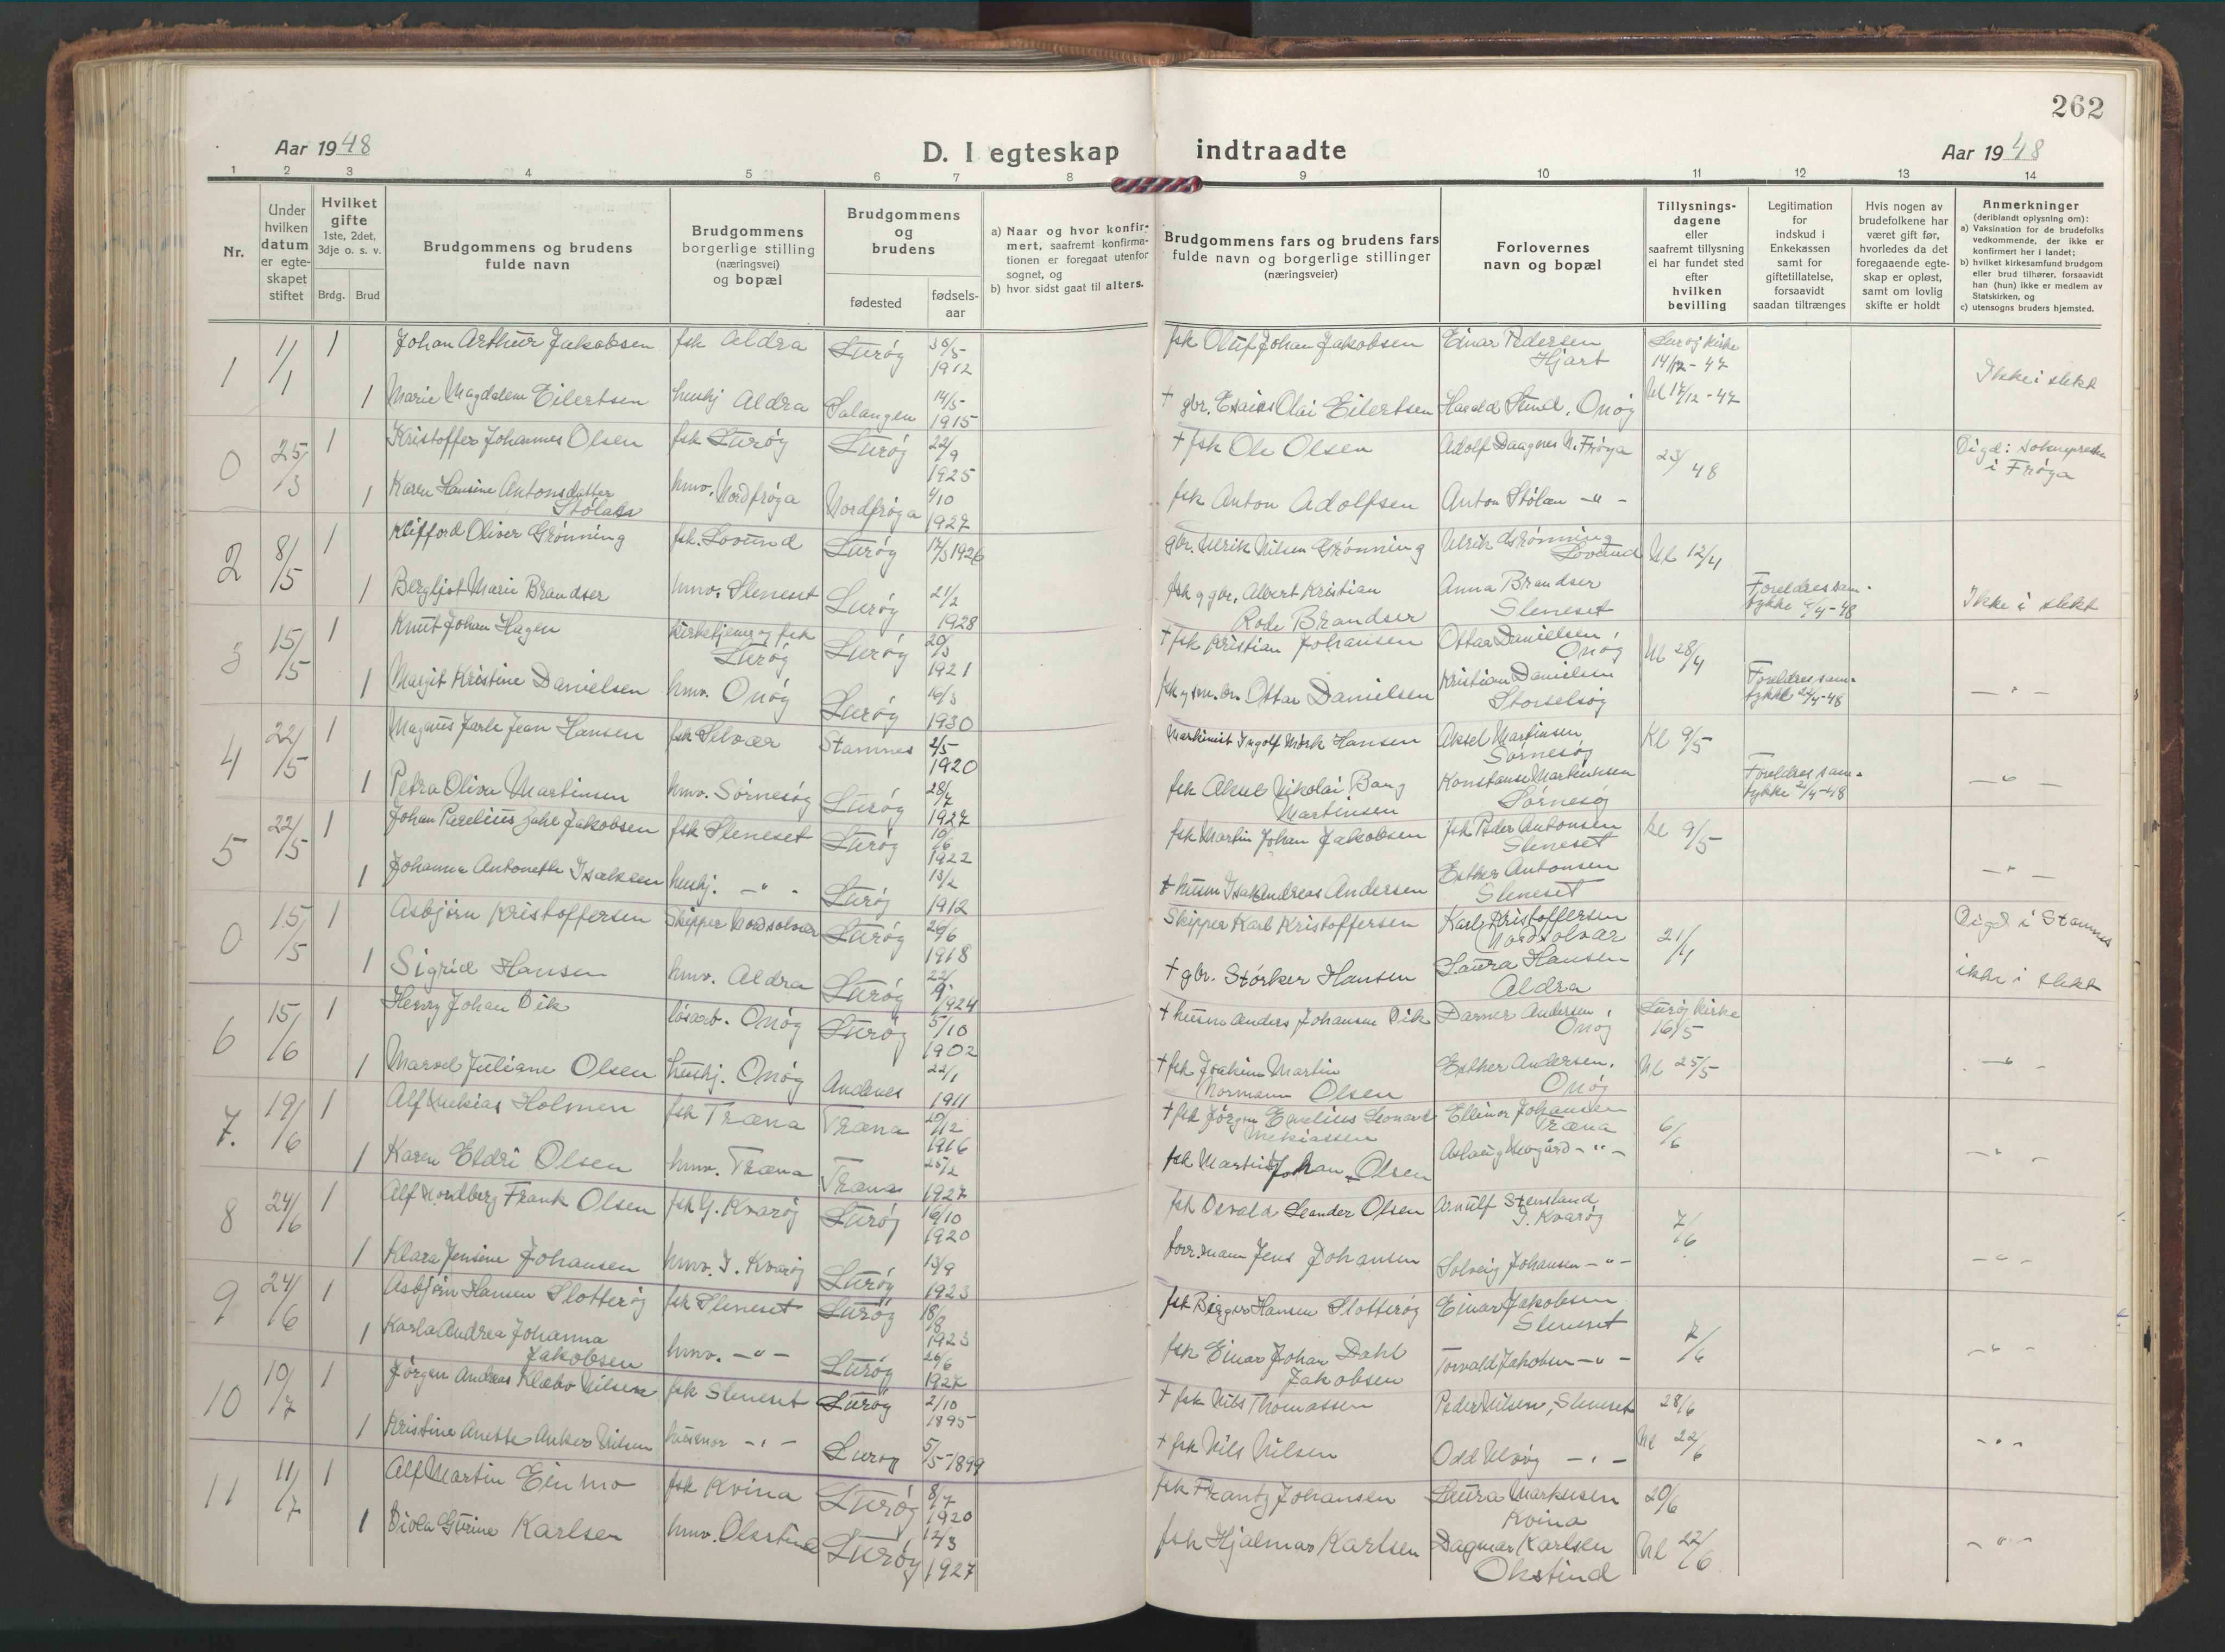 262
Aar 1948
D. I egteskap indtraadte
Aar 1948
1 2 3 4 5 6 7 8 9 10 11 12 13 14
Nr.
Under hvilken datum er egteskapet stiftet
Hvilket gifte 1ste, 2det, 3dje o. s. v.
Brdg. Brud
Brudgommens og brudens fulde navn
Brudgommens borgerlige stilling (næringsvei) og bopæl
Brudgommens og brudens
fødested
fødselsaar
a) Naar og hvor konfirmert, saafremt konfirmationen er foregaat utenfor sognet, og
b) hvor sidst gaat til alters.
Brudgommens fars og brudens fars fulde navn og borgerlige stillinger (næringsveier)
Forlovernes navn og bopæl
Tillysningsdagene eller saafremt tillysning ei har fundet sted efter hvilken bevilling
Legitimation for indskud i Enkekassen samt for giftetillatelse, forsaavidt saadan tiltrænges
Hvis nogen av brudefolkene har været gift før, hvorledes da det foregaaende egteskap er opløst, samt om lovlig skifte er holdt
Anmerkninger (deriblandt oplysning om):
a) Vaksination for de brudefolks vedkommende, der ikke er konfirmert her i landet;
b) hvilket kirkesamfund brudgom eller brud tilhører, forsaavidt han (hun) ikke er medlem av Statskirken, og
c) utensogns bruders hjemsted.
1 1/1 1 Johan Arthur Jakobsen fsk Aldra Lurøy 1912 fsk Oluf Johan Jakobsen Einar Pedersen Hjart Lurøy kirke 14/12-47
1 Marie Magdalene Eilertsen hushj Aldra Salangen 14/5 1915 † gbr. Esaias Olai Eilertsen Harald Stind, Onøy 17/12-47 Ikke i slekt
0 25/3 1 Kristoffer Johannes Olsen fsk Lurøy Lurøy 22/9 1925 † fsk Ole Olsen Adolf N. Frøya 48 Vigd: i Frøya
1 Karen Hansine Antonsdatter Stølan hmv. Nordfrøya Nordfrøya 4/10 1927 fsk Anton Adolfsen Anton Stølan -"-
2 8/5 1 Klifford Oliver Grønning fsk. Lovund Lurøy 1926 gbr. Ulrik Nilsen Grønning Ulrik Grønning Lovund 12/4
1 Bergljot Marie Brandser hmv. Sleneset Lurøy 21/2 1928 fsk g gbr. Albert Kristian Rode Brandser Anna Brandser Sleneset Foreldres samtykke Ikke i slekt
3 15/5 1 Knut Johan Hagen kirketjener og fsk Lurøy Lurøy 20/3 1921 † fsk Kristian Johansen Ottar Danielsen, Onøy 28/4
1 Margit Kristine Danielsen hmv. Onøy Lurøy 16/3 1930 Ottar Danielsen Kristian Danielsen Storselsøy Foreldres samtykke 24/4-48 -"-
4 22/5 1 Magnus Jarle Jean Hansen fsk Selvær Stamnes 2/5 1920 Maskinist Ingolf Mørk Hansen Aksel Martinsen Sørnesøy Kl 9/5
1 Petra Oliva Martinsen hmv. Sørnesøy Lurøy 28/7 1927 fsk Aksel Nikolai Bang Martinsen Konstanse Martinsen Sørnesøy Foreldres samtykke 21/4-48 -"-
5 22/5 1 Johan Parelius Dahl Jakobsen fsk Sleneset Lurøy 1922 fsk Martin Johan Jakobsen fsk Peder Antonsen Sleneset kl 9/5
1 Johanna Antonette Isaksen hushj. -"- Lurøy 13/2 1912 † husm Isak Andreas Andersen Esther Antonsen Sleneset -"-
0 15/5 1 Asbjørn Kristoffersen Skipper Nordsolvær Lurøy 26/6 1918 Skipper Karl Kristoffersen Karl Kristoffersen Nordsolvær 21/4 Vigd i Stamnes
1 Sigrid Hansen hmv. Aldra Lurøy 1924 † gbr. Størker Hansen Laura Hansen Aldra ikke i slekt
6 15/6 1 Henry Johan Vik løsarb. Onøy Lurøy 5/10 1902 † husm Anders Johansen Vik Andersen Onøy Lurøy kirke 16/5
1 Juliane Olsen hushj. Onøy Andenes 22/1 1911 † fsk Joakim Martin Normann Olsen Esther Andersen, Onøy 25/5 -"-
7. 19/6 1 Alf Mekias Holmen fsk Træna Træna 1916 † fsk Jørgen Leonard Mekiassen Ellinor Johansen Træna 6/6
1 Karen Eldri Olsen hmv. Træna Træna 25/2 1927 fsk Martin Johan Olsen Aslaug -"- -"-
8 24/6 1 Alf Nordberg Frank Olsen fsk Y. Kvarøy Lurøy 16/10 1920 fsk Osvald Leander Olsen Arnulf Stensland I. Kvarøy 7/6
1 Klara Jensine Johansen hmv. I. Kvarøy Lurøy 13/9 1923 Jens Johansen Solveig Johansen -"- -"-
9 24/6 1 Asbjørn Hansen Slotterøy fsk Sleneset Lurøy 18/8 1923 fsk Birger Hansen Slotterøy Einar Jakobsen Sleneset
1 Karla Andrea Johanna Jakobsen hmv. -"- Lurøy 26/6 1927 fsk Einar Johan Dahl Jakobsen Torvald Jakobsen -"- 7/6 -"-
10 10/7 1 Jørgen Andreas Klæbo Nilsen fsk Sleneset Lurøy 2/10 1895 † fsk Nils Thomassen Peder Nilsen, Sleneset 28/6
1 Kristine Anette Anker Nilsen husmor -"- Lurøy 5/5-1899 † fsk Nils Nilsen Odd -"- 22/6 -"-
11 11/7 1 Alf Martin Einmo fsk Kvina Lurøy 8/7 1920 fsk Frantz Johansen Laura Markusen Kvina 20/6
1 Viola Gurine Karlsen hmv. Lurøy 12/3 1927 fsk Hjalmar Karlsen Dagmar Karlsen Okstind 22/6 -"-